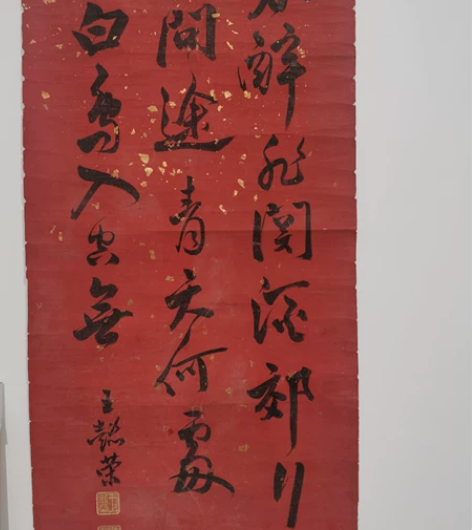 醉非關酒郊行
問途青天何處
白鳥入空無
王懿榮